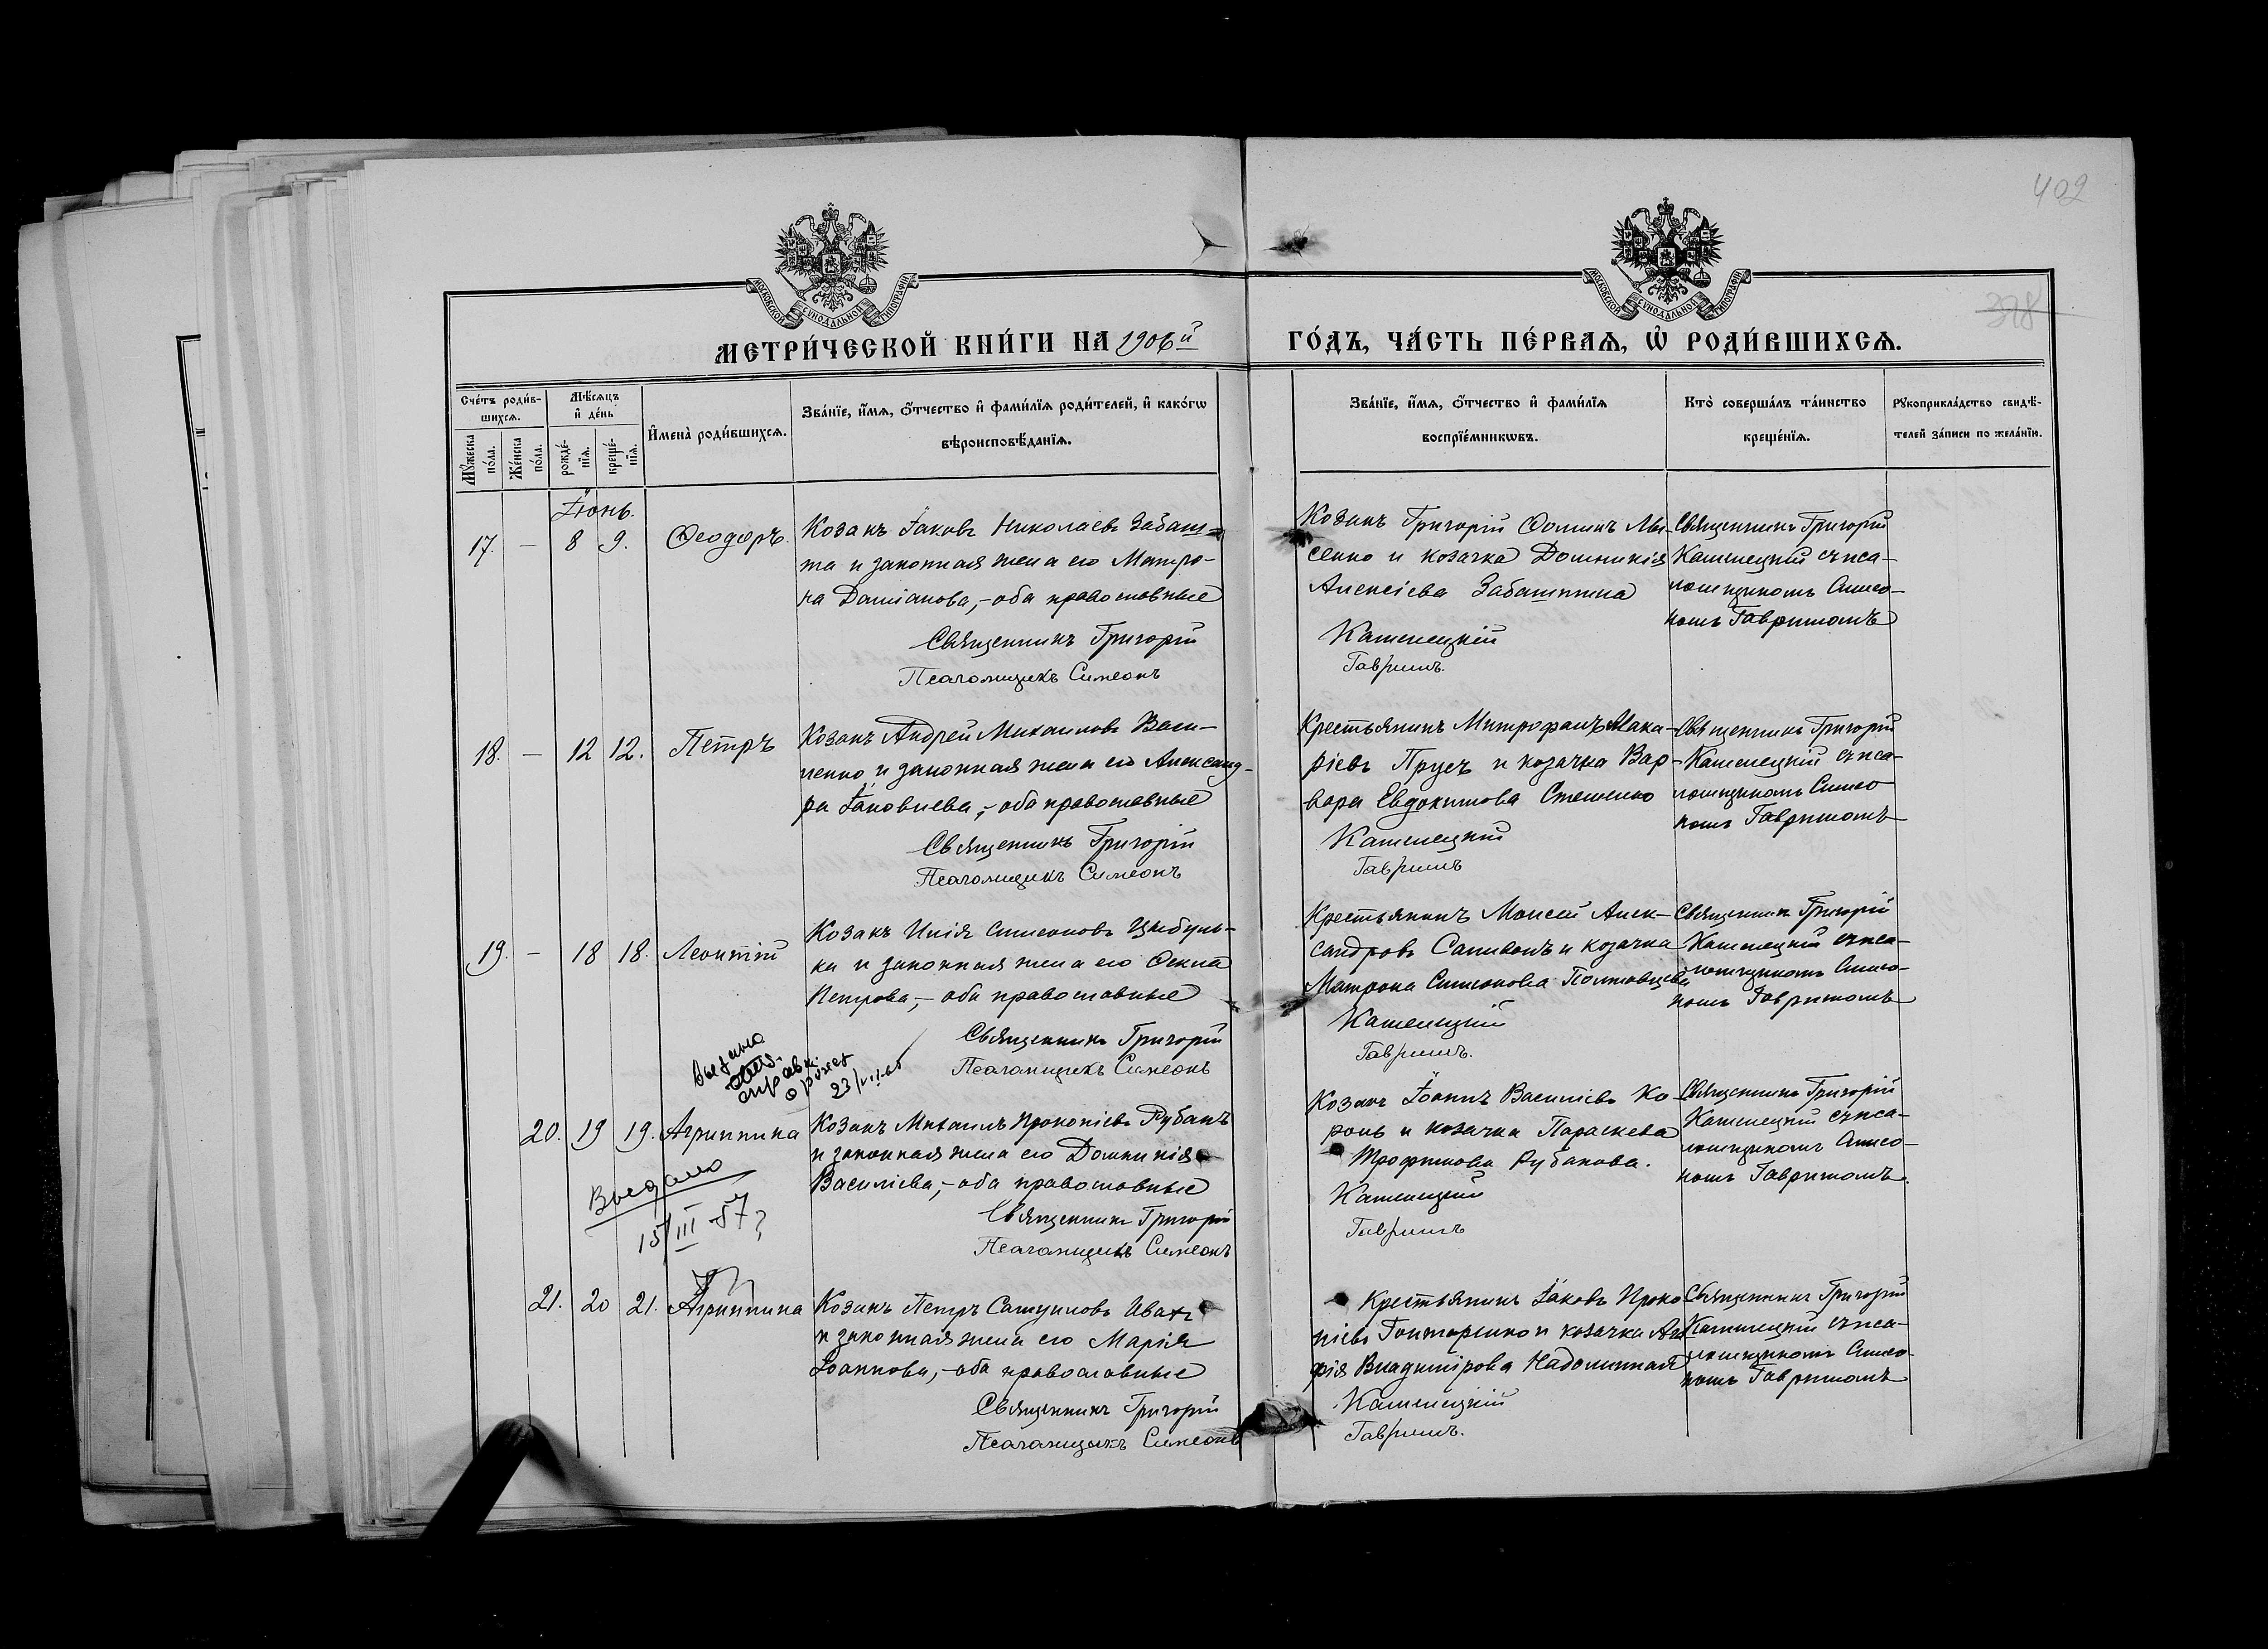 402
378
МОСКОВСКОЙ СУНОДАЛЬНОЙ ТИПОГРАФІИ
МОСКОВСКОЙ СУНОДАЛЬНОЙ ТИПОГРАФІИ
МЕТРИ́ЧЕСКОЙ КНИ́ГИ НА 1906й ГО́ДЪ, ЧА́СТЬ ПЕ́РВАѦ, Ѽ РОДИ́ВШИХСѦ.
Сче́тъ роди́в-
шихсѧ.
Мѣ́сѧцъ
и҆ де́нь
Мꙋ́жеска
по́ла.
Же́нска
по́ла.
рожде́-
нїѧ.
креще́-
нїѧ.
И҆мена̀ роди́вшихсѧ.
Зва́нїе, и҆́мѧ, ѻ҆́тчество и҆ фами́лїѧ роди́телей, и҆ како́гѡ
вѣроисповѣ́данїѧ.
Зва́нїе, и҆́мѧ, ѻ҆́тчество и҆ фами́лїѧ
воспрїе́мникѡвъ.
Кто̀ соверша́лъ та́инство
креще́нїѧ.
Рꙋкоприкла́дство свидѣ́-
телей за́писи по жела́нїю.
Іюнь.
17. — 8 9. Ѳеодоръ.
Козакъ Іаковъ Николаевъ Забаш=
та и законная жена его Матро-
на Даміанова,- оба православные
Священникъ Григорій
Псаломщикъ Симеонъ
Козакъ Григорій Ѳоминъ Лы-
сенко и козачка Домникія
Алексіева Забаштина
Каменецкій
Гавришъ.
Священникъ Григорій
Каменецкій съ пса-
ломщикомъ Симео-
номъ Гавришомъ
18. — 12 12. Петръ
Козакъ Андрей Михаиловъ Васи-
ленко и законная жена его Александ-
ра Іаковлева,- оба православные
Священникъ Григорій
Псаломщикъ Симеонъ
Крестьянинъ Митрофанъ Мака-
ріевъ Прусъ и козачка Вар-
вара Евдокимова Стешенко
Каменецкій
Гавришъ
Священникъ Григорій
Каменецкій съ пса-
ломщикомъ Симео
номъ Гавришомъ
19. — 18 18. Леонтій
Козакъ Илія Симеоновъ Цыбуль-
ка и законная жена его Ѳекла
Петрова,- оба православные
Священникъ Григорій
Псаломщикъ Симеонъ
Крестьянинъ Моисей Алек-
сандровъ Саливонъ и козачка
Матрона Симеонова Полтавцева
Каменецкій
Гавришъ.
Священникъ Григорій
Каменецкій съ пса-
ломщикомъ Симео-
номъ Гавришомъ
Выдано
справк.
о рожд
23/VII-65
20. 19 19. Агриппина
Козакъ Михаилъ Прокопіевъ Рубанъ
и законная жена его Домникія
Василіева,- оба православные
Священникъ Григорій
Псаломщикъ Симеонъ
Козакъ Іоаннъ Василіевъ Ко-
роль и козачка Параскева
Трофимова Рубанова.
Каменецкій
Гавришъ
Священникъ Григорій
Каменецкій съ пса-
ломщикомъ Симео-
номъ Гавришомъ.
Выдано
15/III-57
21. 20 21. Агриппина
Козакъ Петръ Самуиловъ
и законная жена его Марія
Іоаннова,- оба православные
Священникъ Григорій
Псаломщикъ Симеонъ
Крестьянинъ Іаковъ Проко
піевъ Гонтаренко и козачка Ага
фія Владимірова Надолинная
Каменецкій
Гавришъ.
Священникъ Григорій
Каменецкій съ пса-
ломщикомъ Симео-
номъ Гавришомъ